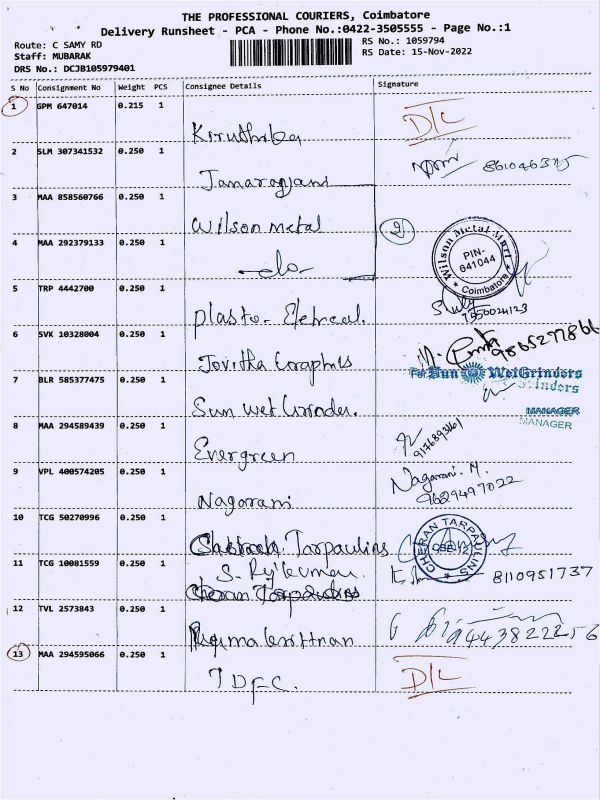 THE PROFESSIONAL COURIERS, Coimbatore
Delivery Runsheet - PCA - Phone No.:0422-3505555 - Page No.:1
Route: C SAMY RD RS No.: 1059794
Staff: MUBARAK RS Date: 15-Nov-2022
DRS No.: DCJB105979401
S No Consignment No Weight PCS Consignee Details Signature
1 GPM 647014 0.215 1 Kiruthika D/L
2 SLM 307341532 0.250 1
3 MAA 858560766 0.250 1 Wilson metal 2
4 MAA 292379133 0.250 1 -do- Wilson Metal Mart PIN-641044 Coimbatore
5 TRP 4442700 0.250 1 Plasto-
6 SVK 10328004 0.250 1 Jovitha Graphics 9865277866
For Sun WetGrinders
7 BLR 585377475 0.250 1 Sun wet Grinder.
MANAGER
MANAGER
8 MAA 294589439 0.250 1 Evergreen
9 VPL 400574205 0.250 1 Nagarani Nagarani. M.
9629497022
10 TCG 50270996 0.250 1 Tarpaulins CHERAN TARPAULINS
11 TCG 10081559 0.250 1 S. 8110951737
Cheran Tarpaulins
12 TVL 2573843 0.250 1 9443822256
13 MAA 294595066 0.250 1 D/L